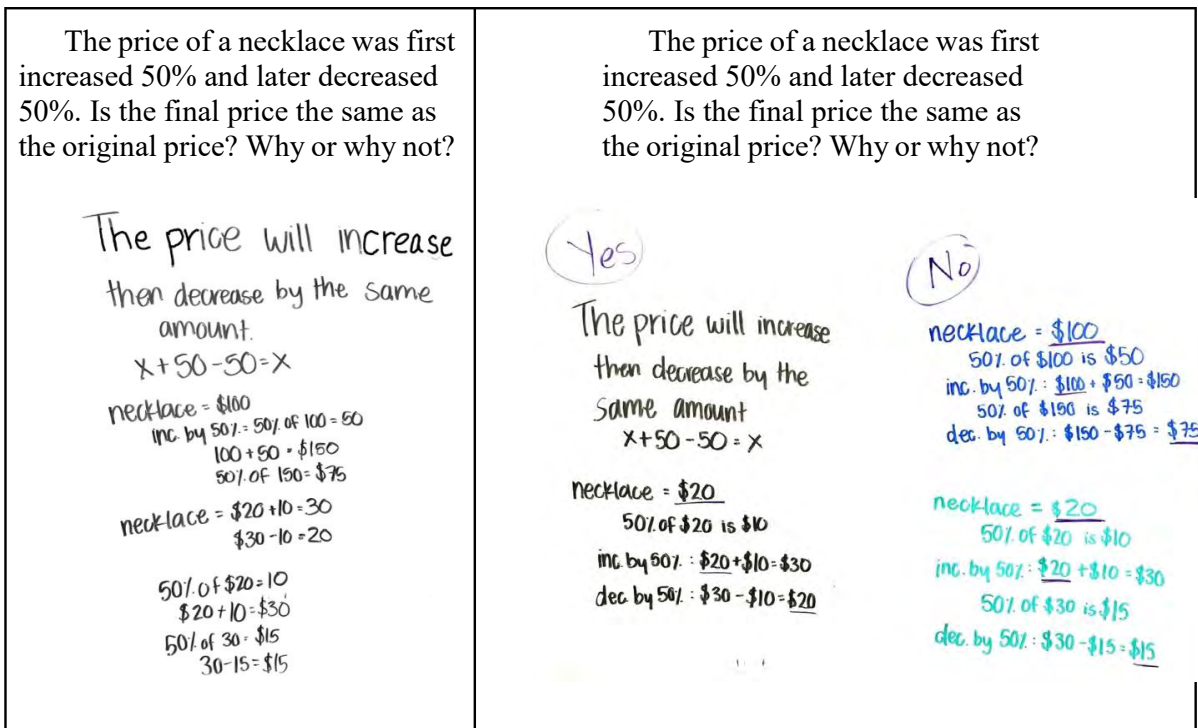 The price of a necklace was first
increased 50% and later decreased
50%. Is the final price the same as
the original price? Why or why not?
The price will increase
then decrease by the same
amount.
x+50-50=x
necklace = $100
inc. by 50% = 50% of 100 = 50
100+50 = $150
50% of 150= $75
necklace = $20 +10 = 30
$30 -10 = 20
50% of $20 = 10
$20 + 10 = $30
50% of 30 = $15
30-15 = $15
The price of a necklace was first
increased 50% and later decreased
50%. Is the final price the same as
the original price? Why or why not?
Yes
The price will increase
then decrease by the
same amount
x+50-50 = x
necklace = $20
50% of $20 is $10
inc. by 50% : $20+$10=$30
dec. by 50% : $30 - $10 = $20
No
necklace = $100
50% of $100 is $50
inc. by 50% : $100 + $50 = $150
50% of $150 is $75
dec. by 50% : $150 - $75 = $75
necklace = $20
50% of $20 is $10
inc. by 50% : $20 + $10 = $30
50% of $30 is $15
dec. by 50% : $30 - $15 = $15